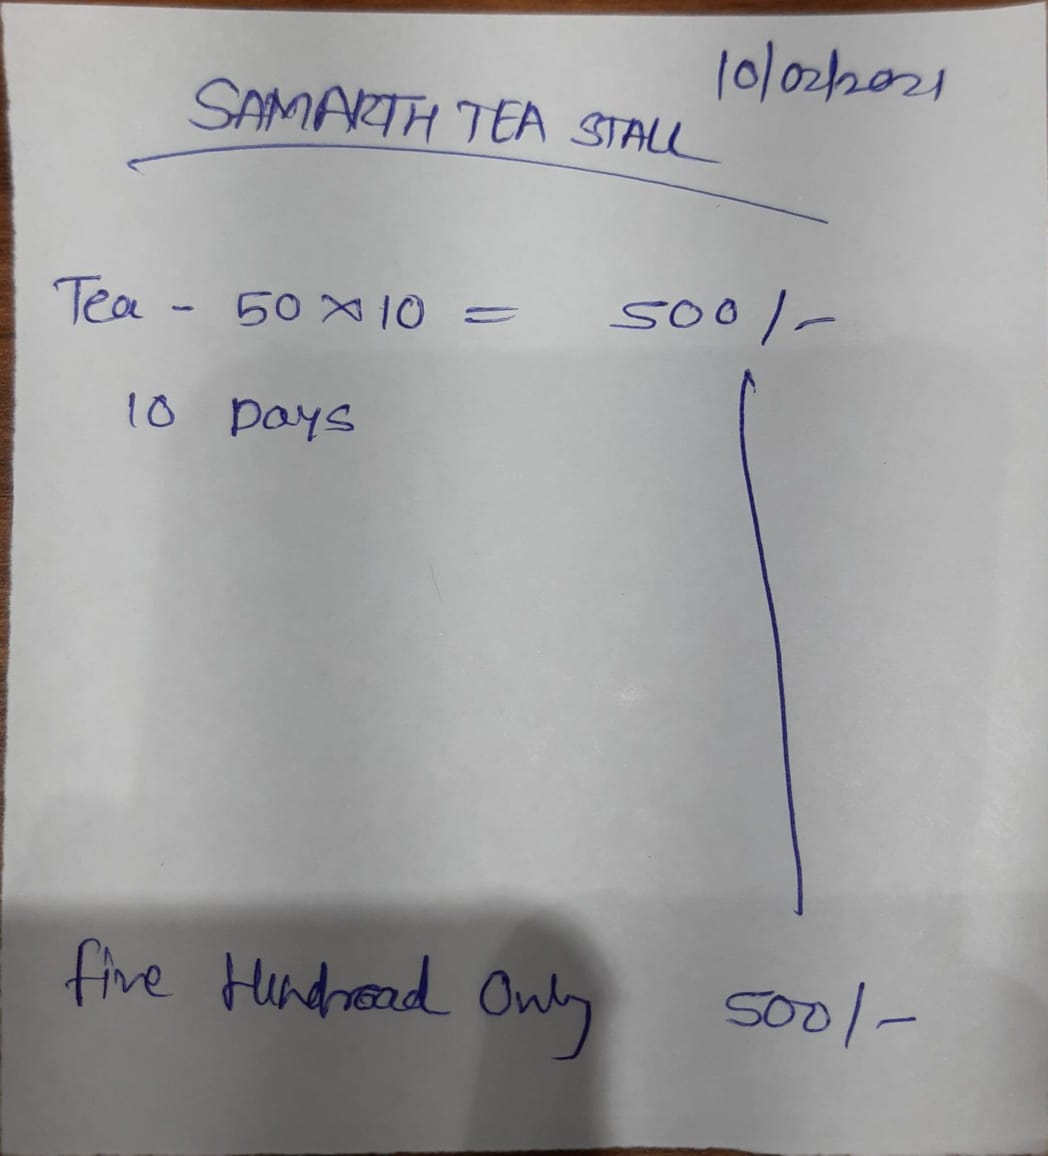 10/02/2021
SAMARTH TEA STALL
Tea - 50 x 10 = 500/-
10 Days
five Hundroad Only 500/-